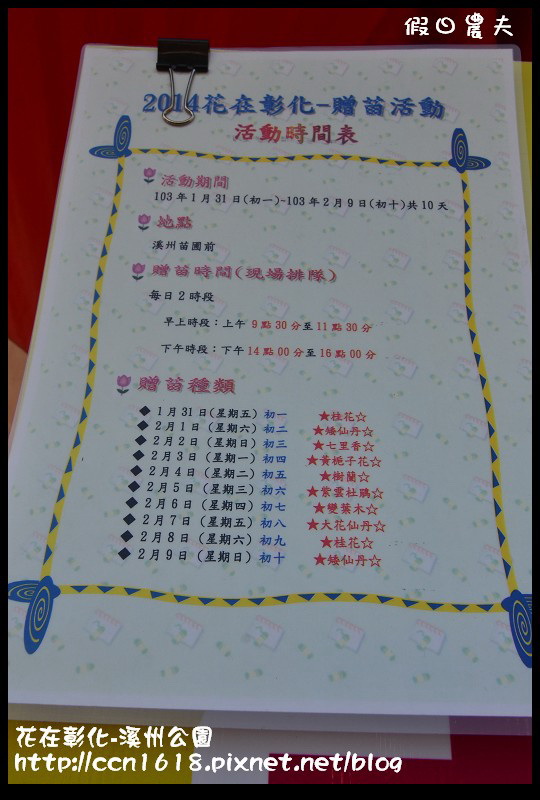 假日農夫
2014花在彰化-贈苗活動
活動時間表
活動期間
103年1月31日(初一)-103年2月9日(初十)共10天
地點
溪州苗圃前
贈苗時間(現場排隊)
每日2時段
早上時段：上午 9點30分至11點30分
下午時段：下午14點00分至16點00分
贈苗種類
◆ 1月31日(星期五) 初一 ★桂花☆
◆ 2月1日 (星期六) 初二 ★矮仙丹☆
◆ 2月2日 (星期日) 初三 ★七里香☆
◆ 2月3日 (星期一) 初四 ★黃梔子花☆
◆ 2月4日 (星期二) 初五 ★樹蘭☆
◆ 2月5日 (星期三) 初六 ★紫雲杜鵑☆
◆ 2月6日 (星期四) 初七 ★變葉木☆
◆ 2月7日 (星期五) 初八 ★大花仙丹☆
◆ 2月8日 (星期六) 初九 ★桂花☆
◆ 2月9日 (星期日) 初十 ★矮仙丹☆
花在彰化-溪州公園
http://ccn1618.pixnet.net/blog